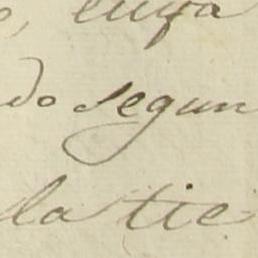 , cuya
do segun
la tie